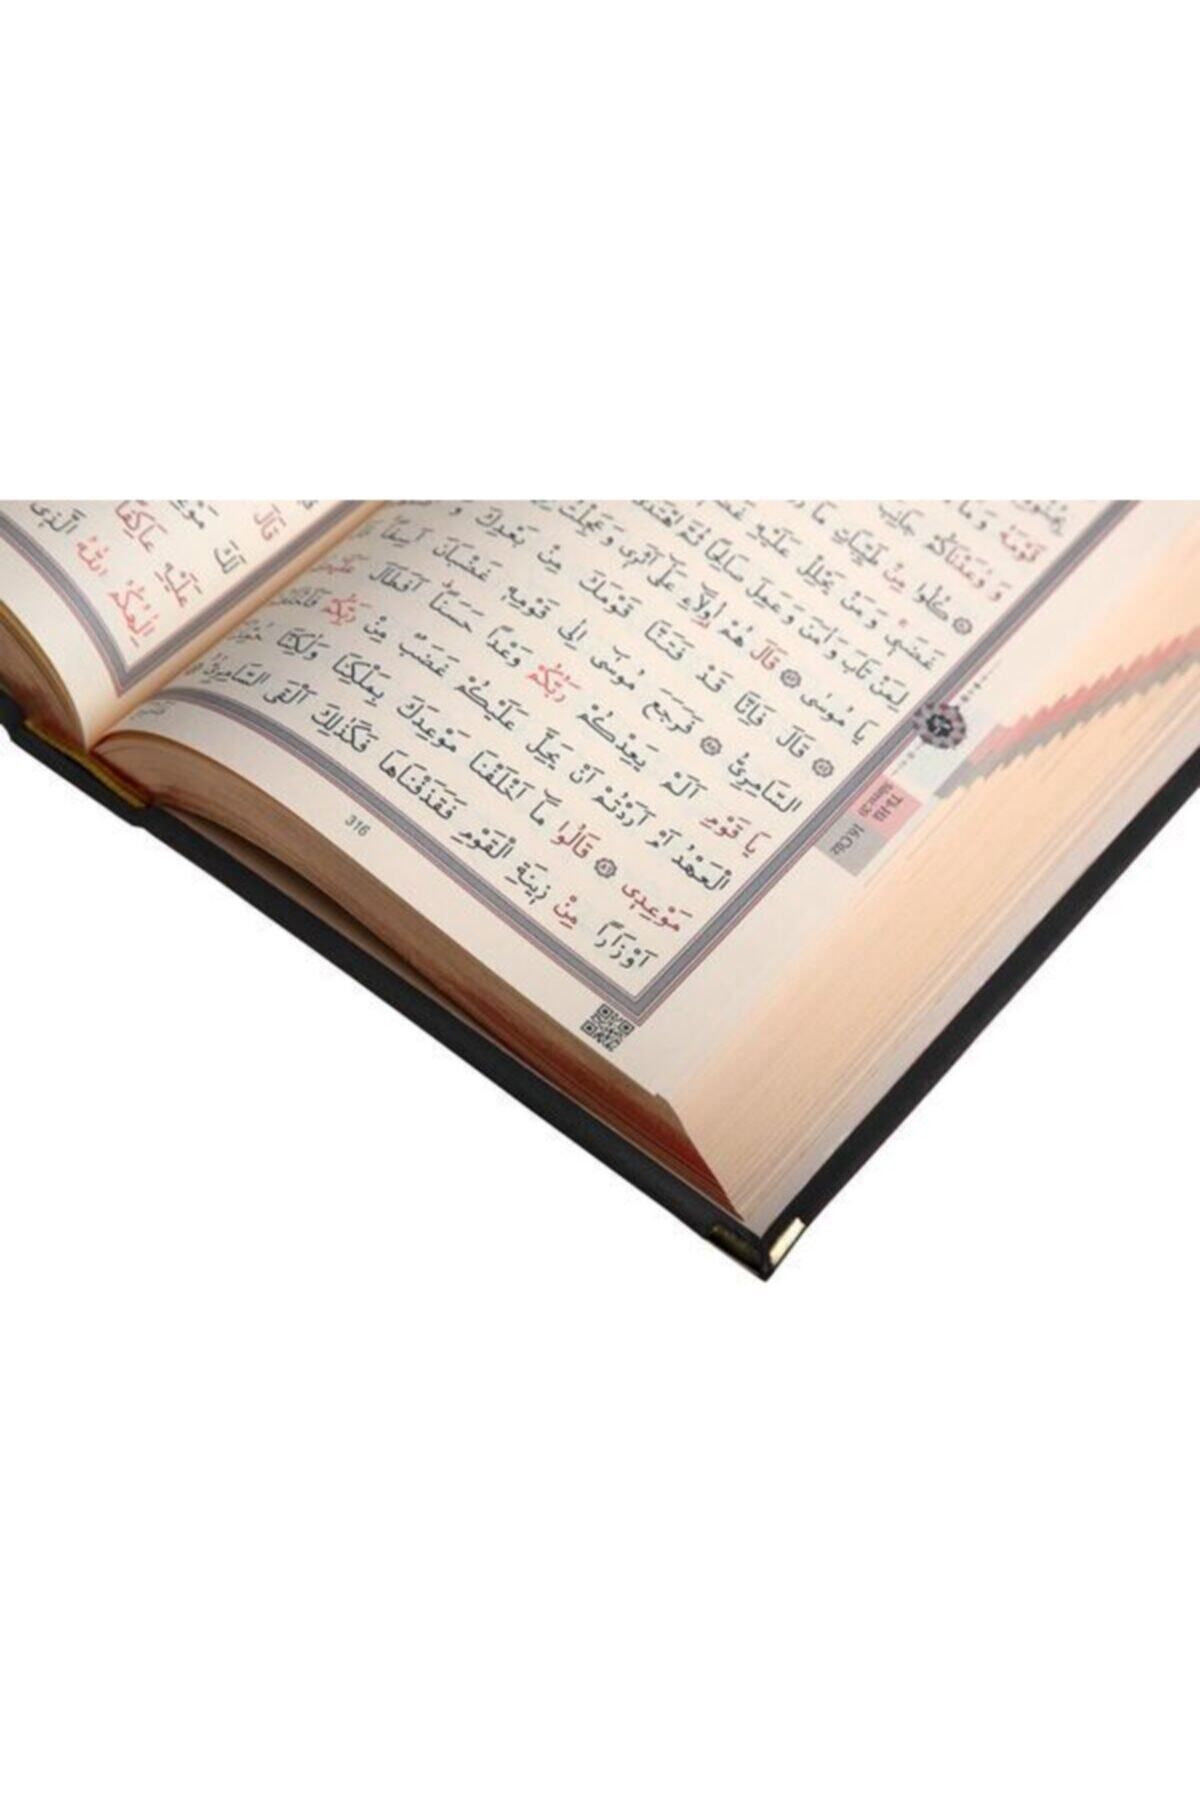 قَوْمَهُ وَمَا
وَوَعَدْنَاكُمْ جَانِبَ
كُلُوا مِنْ طَيِّبَاتِ مَا
غَضَبٖى وَمَنْ يَحْلِلْ عَلَيْهِ
لِمَنْ تَابَ وَاٰمَنَ وَعَمِلَ صَالِحًا ثُمَّ اهْتَدٰى
يَا مُوسٰى قَالَ هُمْ اُولَٓاءِ عَلٰٓى اَثَرٖى وَعَجِلْتُ
قَالَ فَاِنَّا قَدْ فَتَنَّا قَوْمَكَ مِنْ بَعْدِكَ وَ
السَّامِرِىُّ فَرَجَعَ مُوسٰٓى اِلٰى قَوْمِهٖ غَضْبَانَ اَسِفًا
يَا قَوْمِ اَلَمْ يَعِدْكُمْ رَبُّكُمْ وَعْدًا حَسَنًا اَفَطَالَ
الْعَهْدُ اَمْ اَرَدْتُمْ اَنْ يَحِلَّ عَلَيْكُمْ غَضَبٌ مِنْ رَبِّكُمْ
مَوْعِدٖى قَالُوا مَٓا اَخْلَفْنَا مَوْعِدَكَ بِمَلْكِنَا وَلٰكِنَّا
اَوْزَارًا مِنْ زٖينَةِ الْقَوْمِ فَقَذَفْنَاهَا فَكَذٰلِكَ اَلْقَى السَّامِرِىُّ
316
TÂ-HÂ
Sûresi:20
16.Cüz
قَالَ
لَكَ مَوْ
عَلَيْهِ عَاكِفًا
اِلٰهُكُمُ اللّٰهُ الَّذٖى